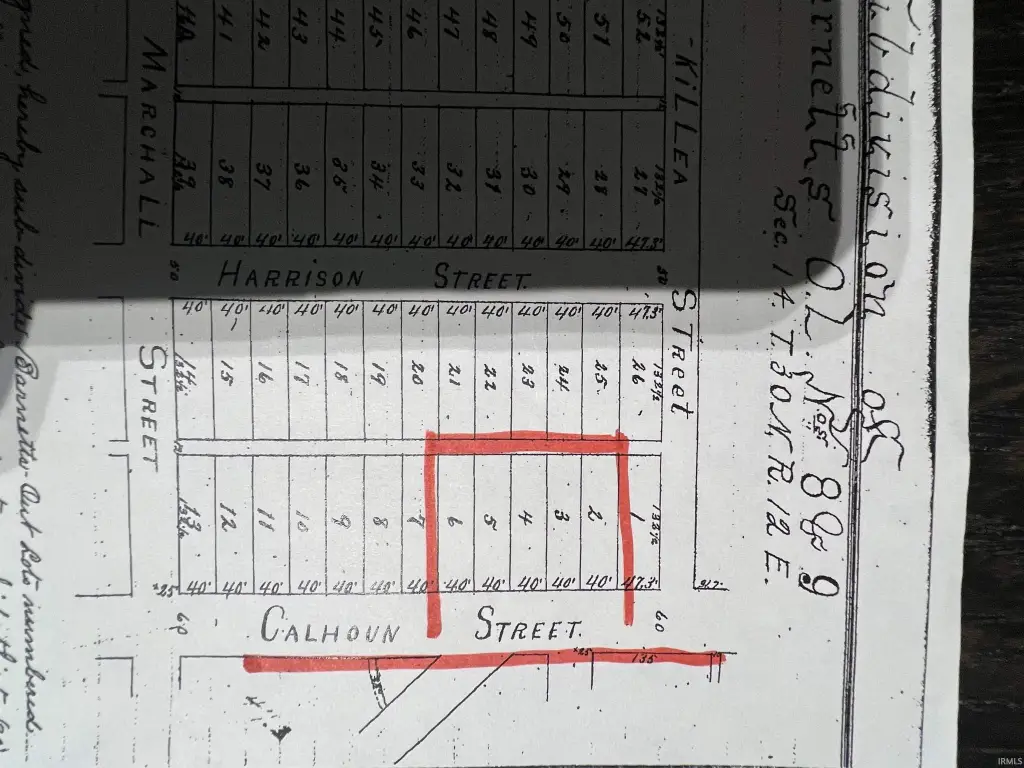 Sec. 14. T. 30 N. R. 12 E.
- KILLEA
STREET
MARCHALL
STREET
41 42 43 44 45 46 47 48 49 50 51 52
39 38 37 36 35 34 33 32 31 30 29 28 27
40' 40' 40' 40' 40' 40' 40' 40' 40' 40' 40' 40' 47.3'
50 50
HARRISON STREET.
40' 40' 40' 40' 40' 40' 40' 40' 40' 40' 40' 40' 47.3'
14 15 16 17 18 19 20 21 22 23 24 25 26
132½ 132½
13 12 11 10 9 8 7 6 5 4 3 2 1
132½ 132½
40' 40' 40' 40' 40' 40' 40' 40' 40' 40' 40' 40' 47.3'
60 60
CALHOUN STREET.
135
hereby, sub-divides Barnetts Out Lots numbered
IRMLS